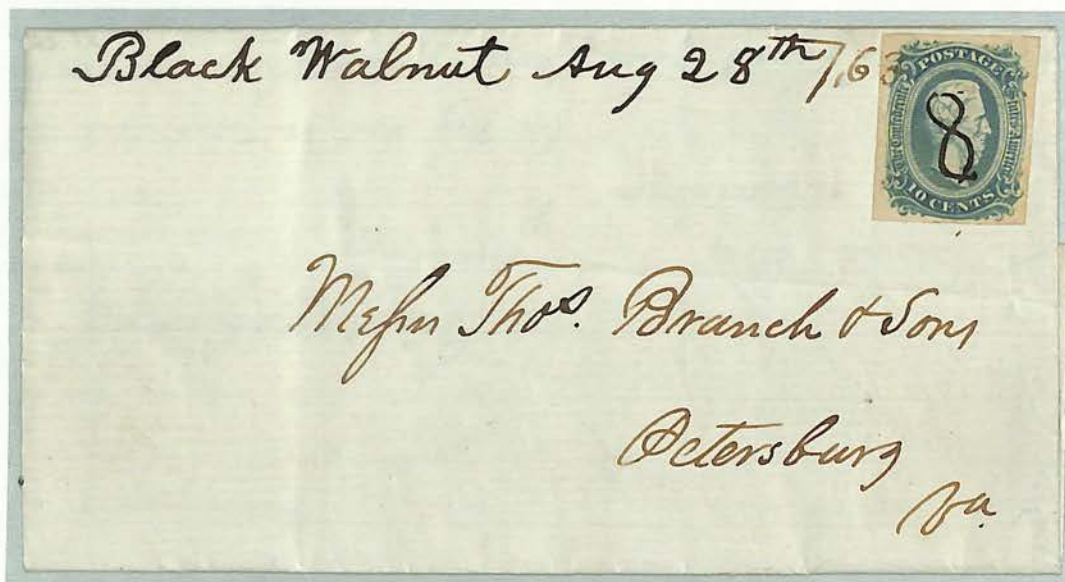 Black Walnut Aug 28th /63
POSTAGE
The Confederate States of America
8
10 CENTS
Messrs Thos. Branch & Sons
Petersburg
Va.